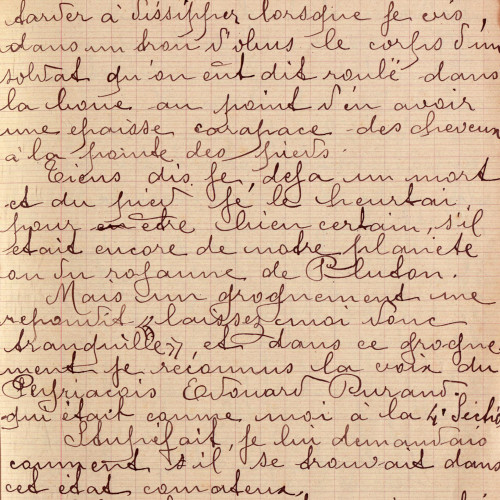 tarder à dissipper lorsque je vis,
dans un trou d'obus le corps d'un
soldat qu'on eût dit roulë dans
la boue au point d'en avoir
une epaisse carapace des cheveux
à la pointe des pieds.
Tiens dis je, deja un mort
et du pied je le heurtai
pour être bien certain, s'il
etait encore de notre planete
ou du royaume de Pluton.
Mais un grognement me
repondit "laissez moi donc
tranquille" et dans ce grogne-
ment je reconnus la voix du
Peyriacois Edouard Durand.
qui était comme moi à la 4e Section
Stupéfait, je lui demandais
comment s'il se trouvait dans
cet état comateux